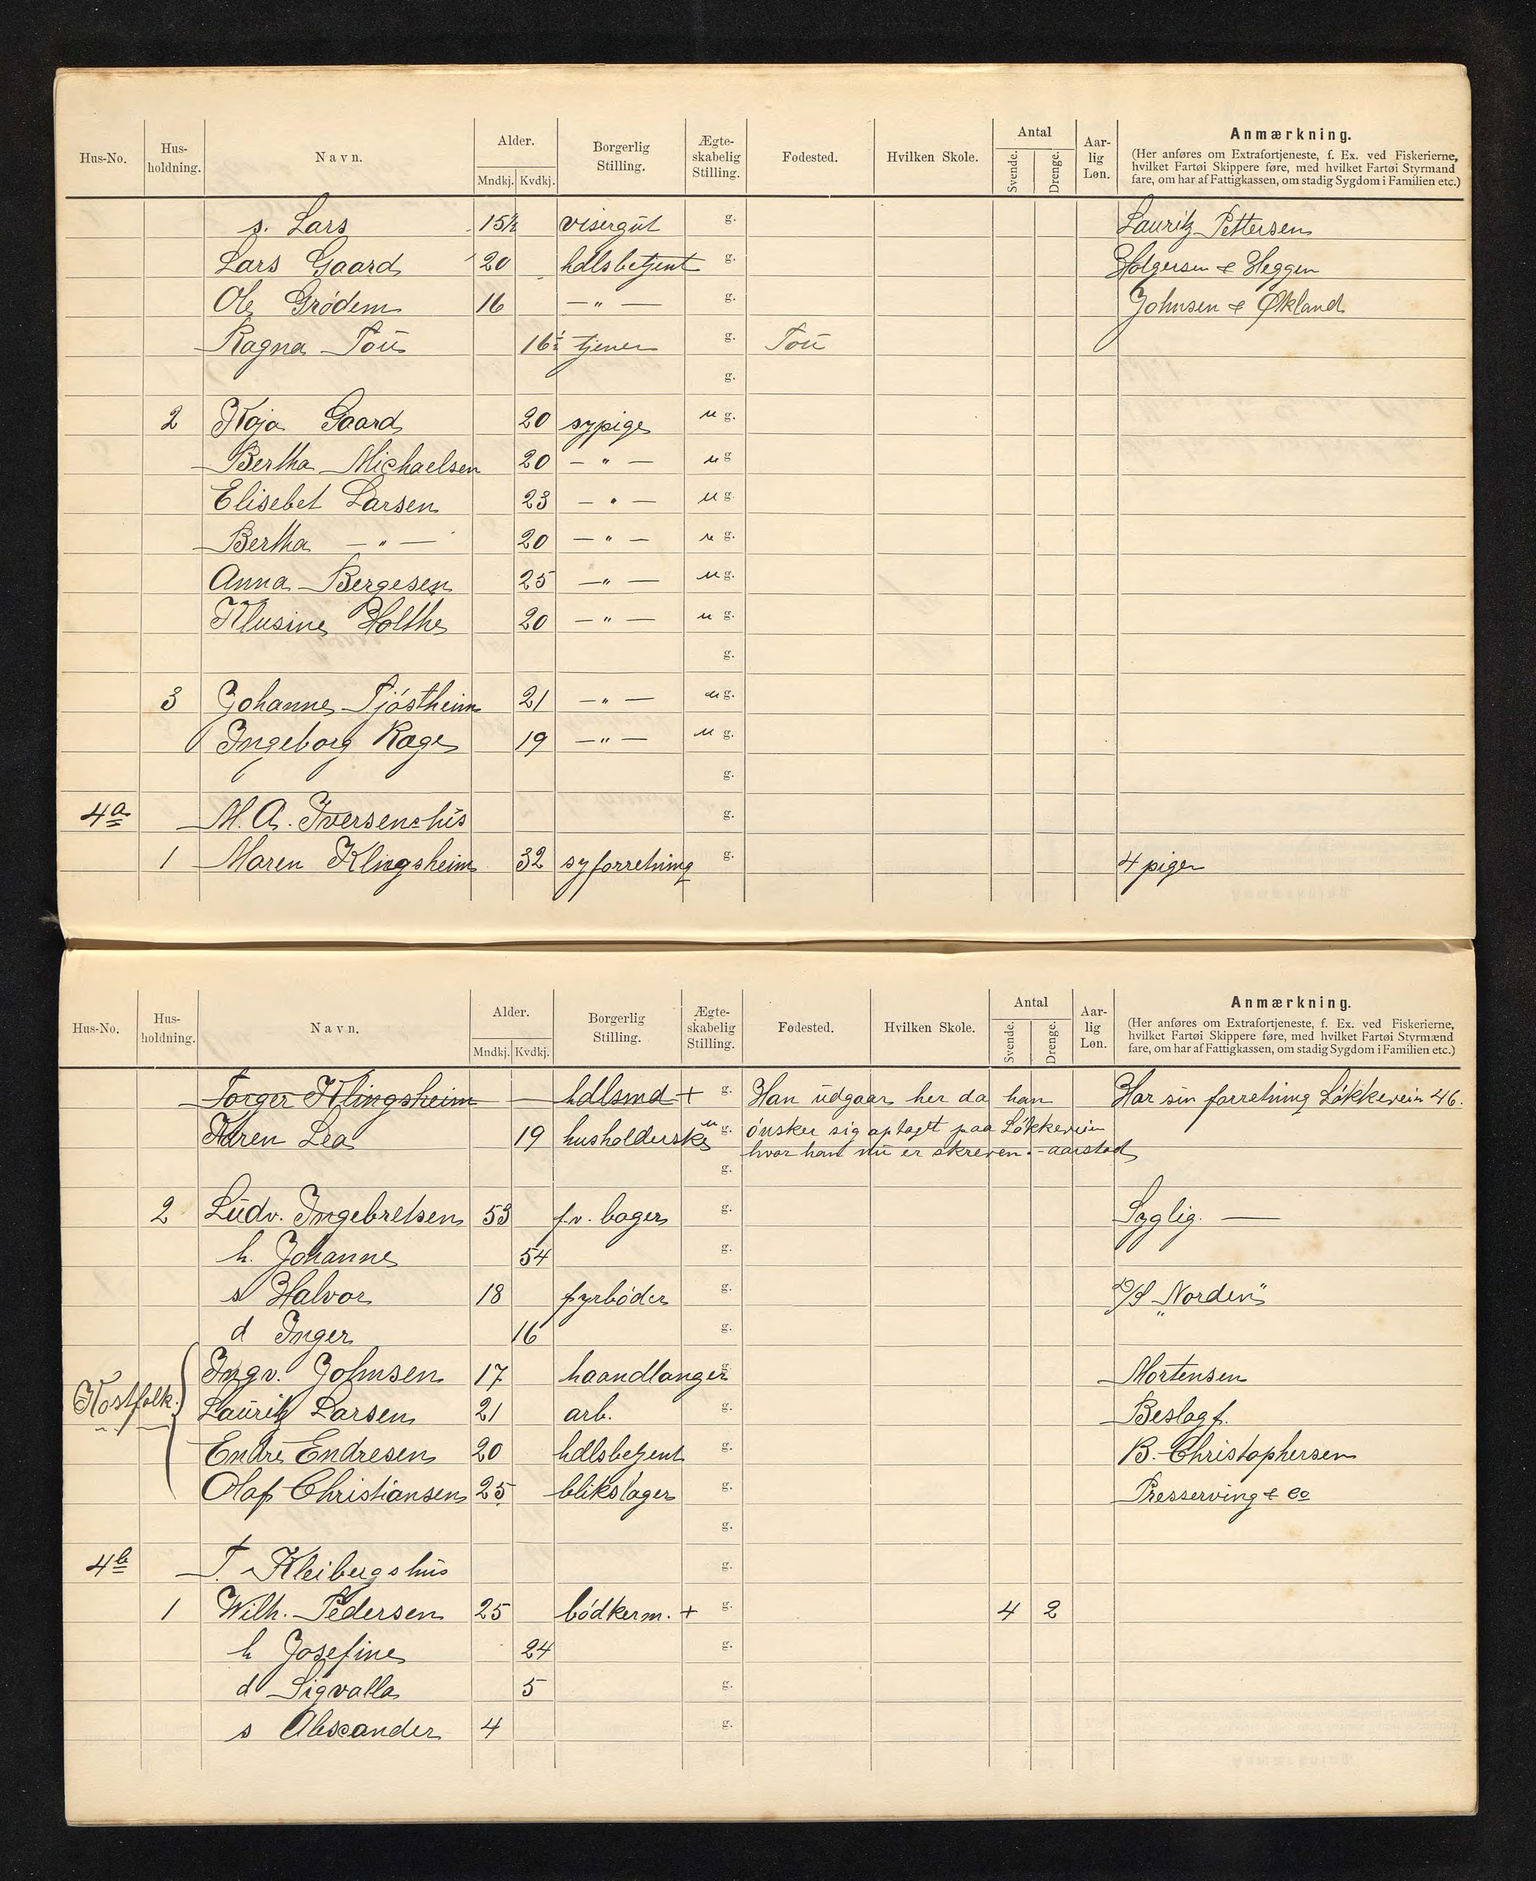 Hus-No. Hus-holdning. Navn. Alder. Mndkj. Kvdkj. Borgerlig Stilling. Ægte-skabelig Stilling. Fødested. Hvilken Skole. Antal Svende. Drenge. Aar-lig Løn. Anmærkning.
(Her anføres om Extrafortjeneste, f. Ex. ved Fiskerierne,
hvilket Fartøi Skippere føre, med hvilket Fartøi Styrmænd
fare, om har af Fattigkassen, om stadig Sygdom i Familien etc.)
s. Lars 15½ visergut g. Lauritz Pettersen
Lars Gaard 20 hdlsbetjent g. Holgersen & Heggen
Ole Grödem 16 — " — g. Johnsen & Økland
Ragna Tou 16½ tjener g. Tou
g.
2 Kaja Gaard 20 sypige u g.
Bertha Michaelsen 20 — " — u g.
Elisebet Larsen 23 — " — u g.
Bertha — " — 20 — " — u g.
Anna Bergesen 25 — " — u g.
Klusine Holthe 20 — " — u g.
g.
3 Johanne Tjöstheim 21 — " — u g.
Ingeborg Rage 19 — " — u g.
g.
4a M. A. Iversens hus g.
1 Maren Klingsheim 32 syforretning g. 4 piger
Hus-No. Hus-holdning. Navn. Alder. Mndkj. Kvdkj. Borgerlig Stilling. Ægte-skabelig Stilling. Fødested. Hvilken Skole. Antal Svende. Drenge. Aar-lig Løn. Anmærkning.
(Her anføres om Extrafortjeneste, f. Ex. ved Fiskerierne,
hvilket Fartøi Skippere føre, med hvilket Fartøi Styrmænd
fare, om har af Fattigkassen, om stadig Sygdom i Familien etc.)
Torger Klingsheim — hdlsmd + g. Han udgaar her da han Har sin forretning Løkkevein 46.
Karen Lea 19 husholderske u g. önsker sig optaget paa Løkkeveien
g. hvor han nu er skreven. - aarstad
2 Ludv. Ingebretsen 53 f.v. bager g. Syglig. —
h. Johanne 54 g.
s Halvor 18 fyrböder g. D/S "Norden"
d Inger 16 g.
Ingv. Johnsen 17 haandlanger g. Mortensen
Kostfolk. Lauritz Larsen 21 arb. g. Beslagf.
Endre Endresen 20 hdlsbetjent g. B. Christophersen
Olaf Christiansen 25 blikslager g. Presserving & Co
g.
4b T. Kleibergs hus g.
1 Wilh. Pedersen 25 bödkerm. + g. 4 2
h Josefine 24 g.
d Sigvalla 5 g.
s Alexander 4 g.